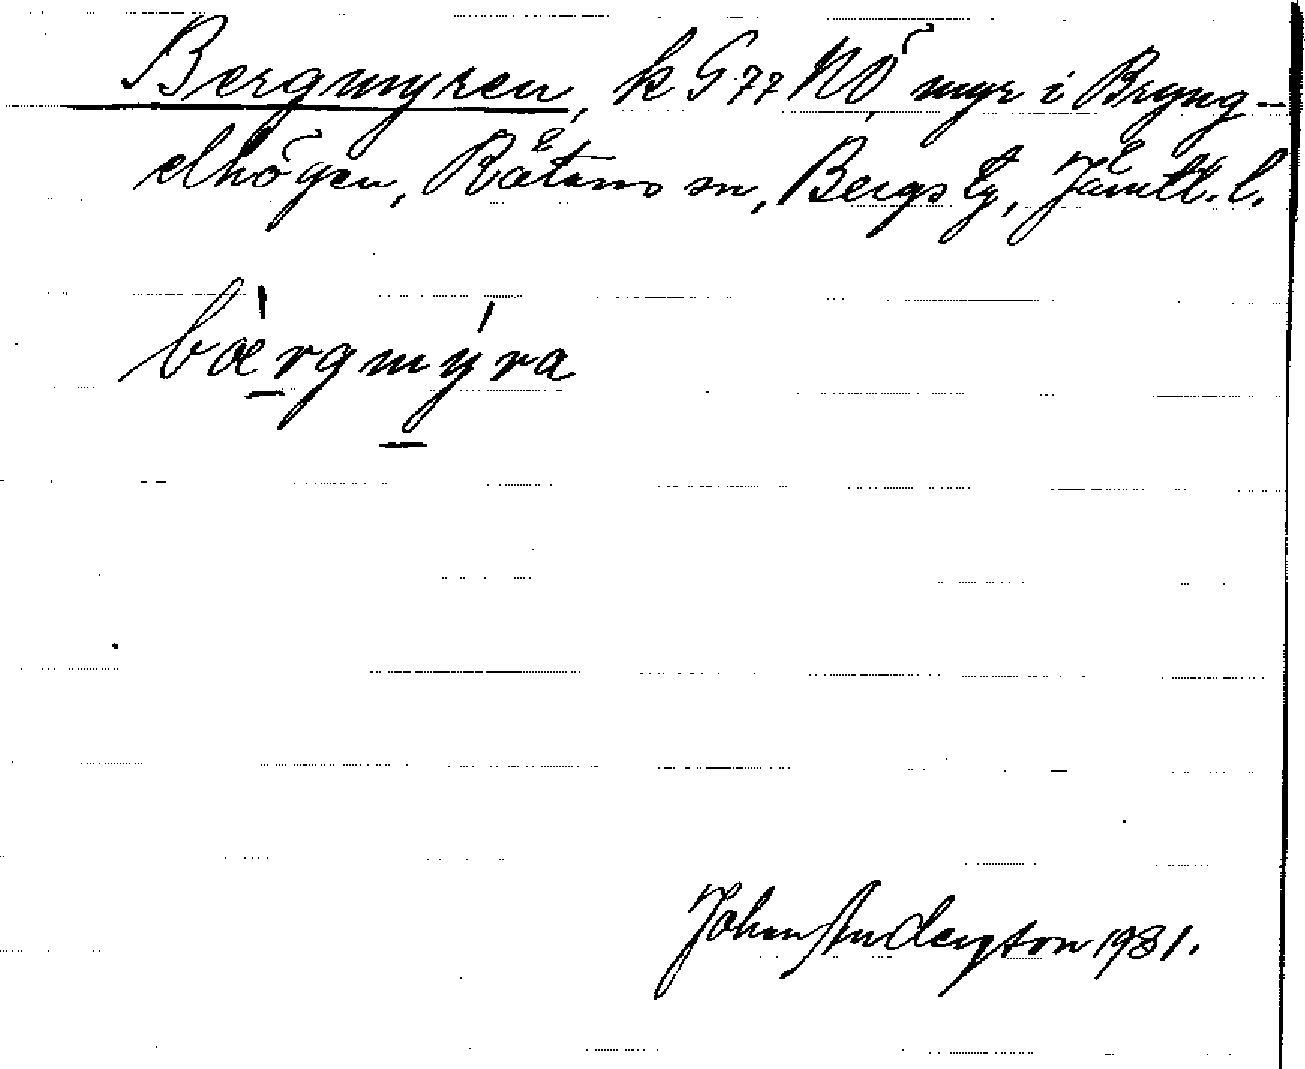 Bergmyren, k G 77 NÖ myr i Bryng-
elhögen, Rätans sn, Bergs tg, Jämtl. l.
bæ̀rgmýra
Johan Anderston 1931.